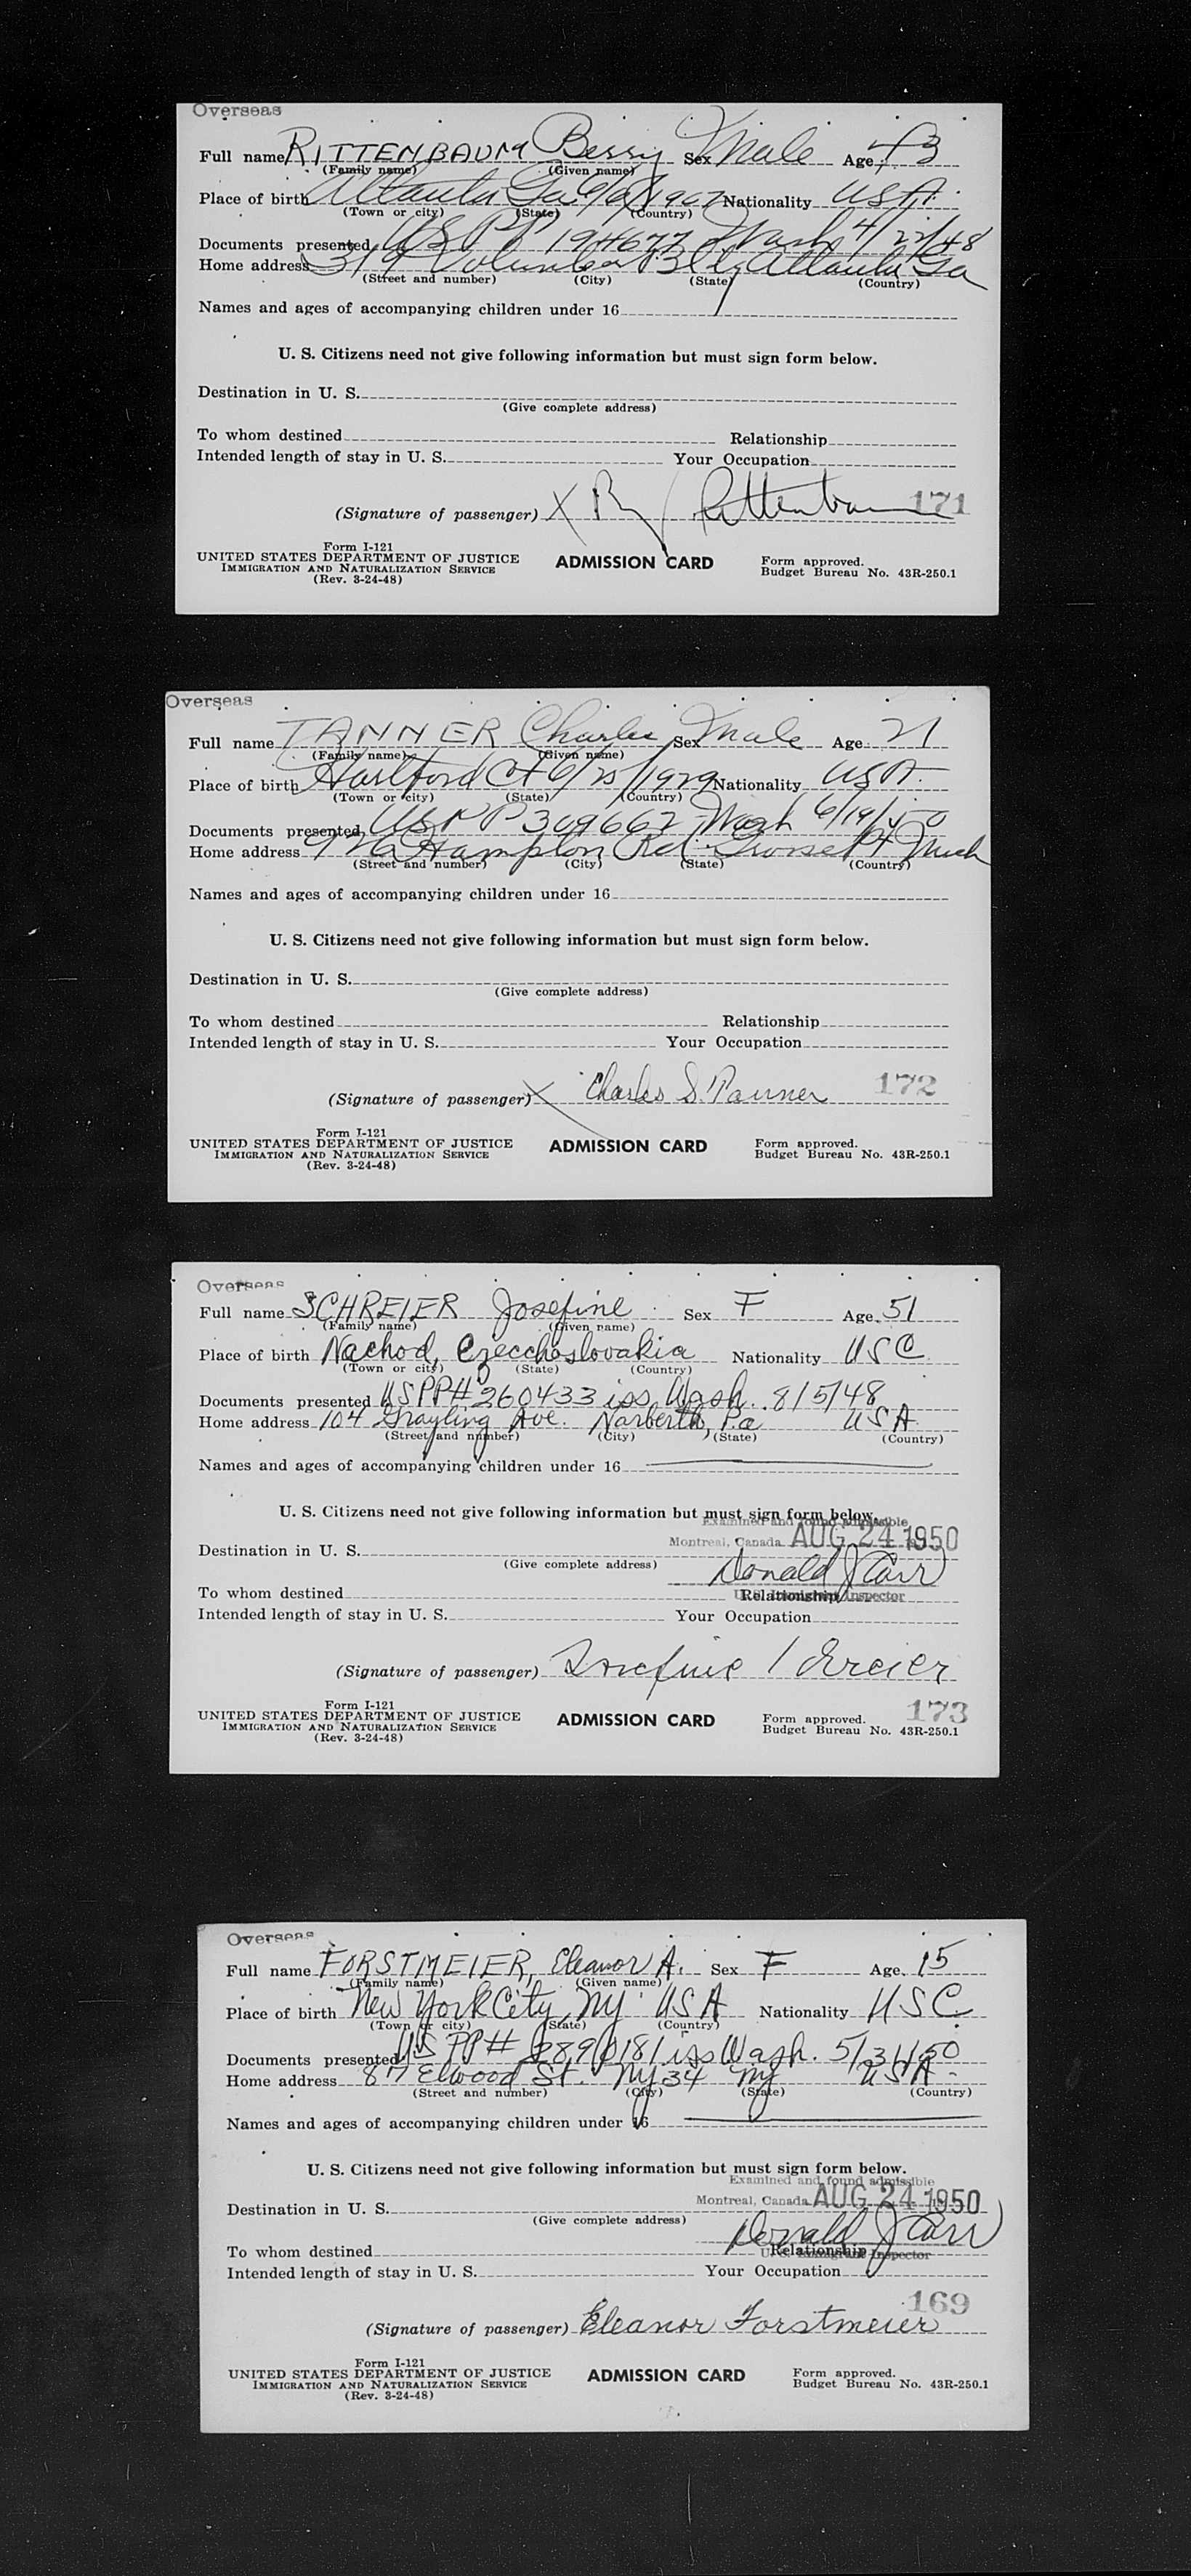 Overseas
Full name RITTENBAUM Berry Sex Male Age 43
(Family name) (Given name)
Place of birth Atlanta Ga 6/6/1907 Nationality USA.
(Town or city) (State) (Country)
Documents presented USPP 194677 Wash 4/22/48
Home address 319 Volunteer Bldg Atlanta Ga
(Street and number) (City) (State) (Country)
Names and ages of accompanying children under 16
U. S. Citizens need not give following information but must sign form below.
Destination in U. S.
(Give complete address)
To whom destined Relationship
Intended length of stay in U. S. Your Occupation
(Signature of passenger) X Rittenbaum 171
Form I-121
UNITED STATES DEPARTMENT OF JUSTICE ADMISSION CARD Form approved.
IMMIGRATION AND NATURALIZATION SERVICE Budget Bureau No. 43R-250.1
(Rev. 3-24-48)
Overseas
Full name TANNER Charles Sex Male Age 21
(Family name) (Given name)
Place of birth Hartford Ct 6/25/1929 Nationality USA.
(Town or city) (State) (Country)
Documents presented USPP 309662 Wash 6/19/50
Home address Hampton Rd. Grosse Pt Mich
(Street and number) (City) (State) (Country)
Names and ages of accompanying children under 16
U. S. Citizens need not give following information but must sign form below.
Destination in U. S.
(Give complete address)
To whom destined Relationship
Intended length of stay in U. S. Your Occupation
(Signature of passenger) X Charles S. Tanner 172
Form I-121
UNITED STATES DEPARTMENT OF JUSTICE ADMISSION CARD Form approved.
IMMIGRATION AND NATURALIZATION SERVICE Budget Bureau No. 43R-250.1
(Rev. 3-24-48)
Overseas
Full name SCHREIER Josefine Sex F Age 51
(Family name) (Given name)
Place of birth Nachod, Czecchoslovakia Nationality USC
(Town or city) (State) (Country)
Documents presented USPP# 260433 iss Wash. 8/5/48
Home address 104 Grayling Ave. Narberth, Pa USA
(Street and number) (City) (State) (Country)
Names and ages of accompanying children under 16
U. S. Citizens need not give following information but must sign form below.
Examined and found admissible
Montreal, Canada AUG 24 1950
Destination in U. S.
(Give complete address) Donald J Carr
To whom destined Relationship
U. S. Immigrant Inspector
Intended length of stay in U. S. Your Occupation
(Signature of passenger) Josefine Schreier
173
Form I-121
UNITED STATES DEPARTMENT OF JUSTICE ADMISSION CARD Form approved.
IMMIGRATION AND NATURALIZATION SERVICE Budget Bureau No. 43R-250.1
(Rev. 3-24-48)
Overseas
Full name FORSTMEIER, Eleanor A. Sex F Age 15
(Family name) (Given name)
Place of birth New York City, NY USA Nationality USC
(Town or city) (State) (Country)
Documents presented US PP# iss Wash. 5/31/50
Home address 87 Elwood St. NY 34 NY USA
(Street and number) (City) (State) (Country)
Names and ages of accompanying children under 16
U. S. Citizens need not give following information but must sign form below.
Examined and found admissible
Montreal, Canada AUG 24 1950
Destination in U. S.
(Give complete address) Donald J Carr
To whom destined Relationship
U. S. Immigrant Inspector
Intended length of stay in U. S. Your Occupation
169
(Signature of passenger) Eleanor Forstmeier
Form I-121
UNITED STATES DEPARTMENT OF JUSTICE ADMISSION CARD Form approved.
IMMIGRATION AND NATURALIZATION SERVICE Budget Bureau No. 43R-250.1
(Rev. 3-24-48)